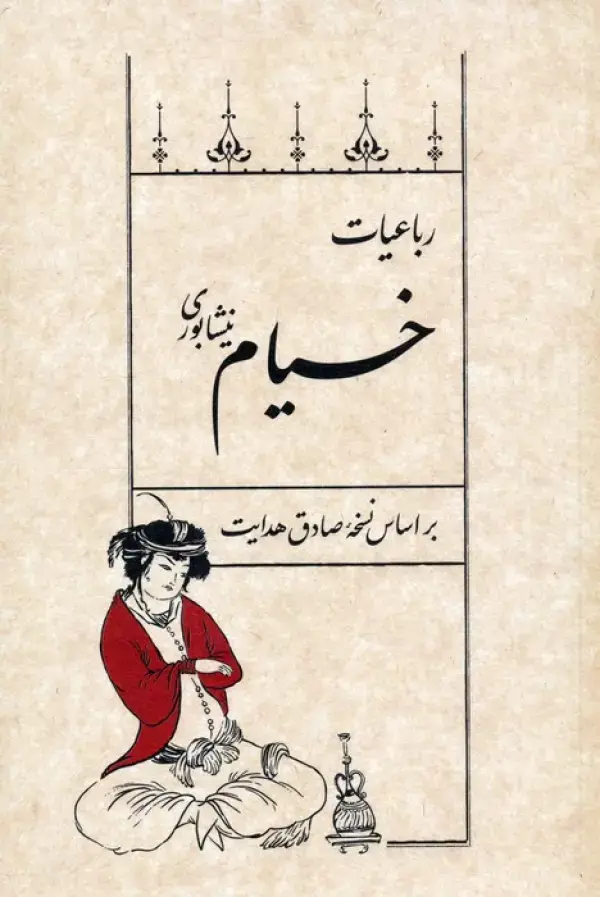 رباعیات
خیام
نیشابوری
بر اساس نسخهٔ صادق هدایت